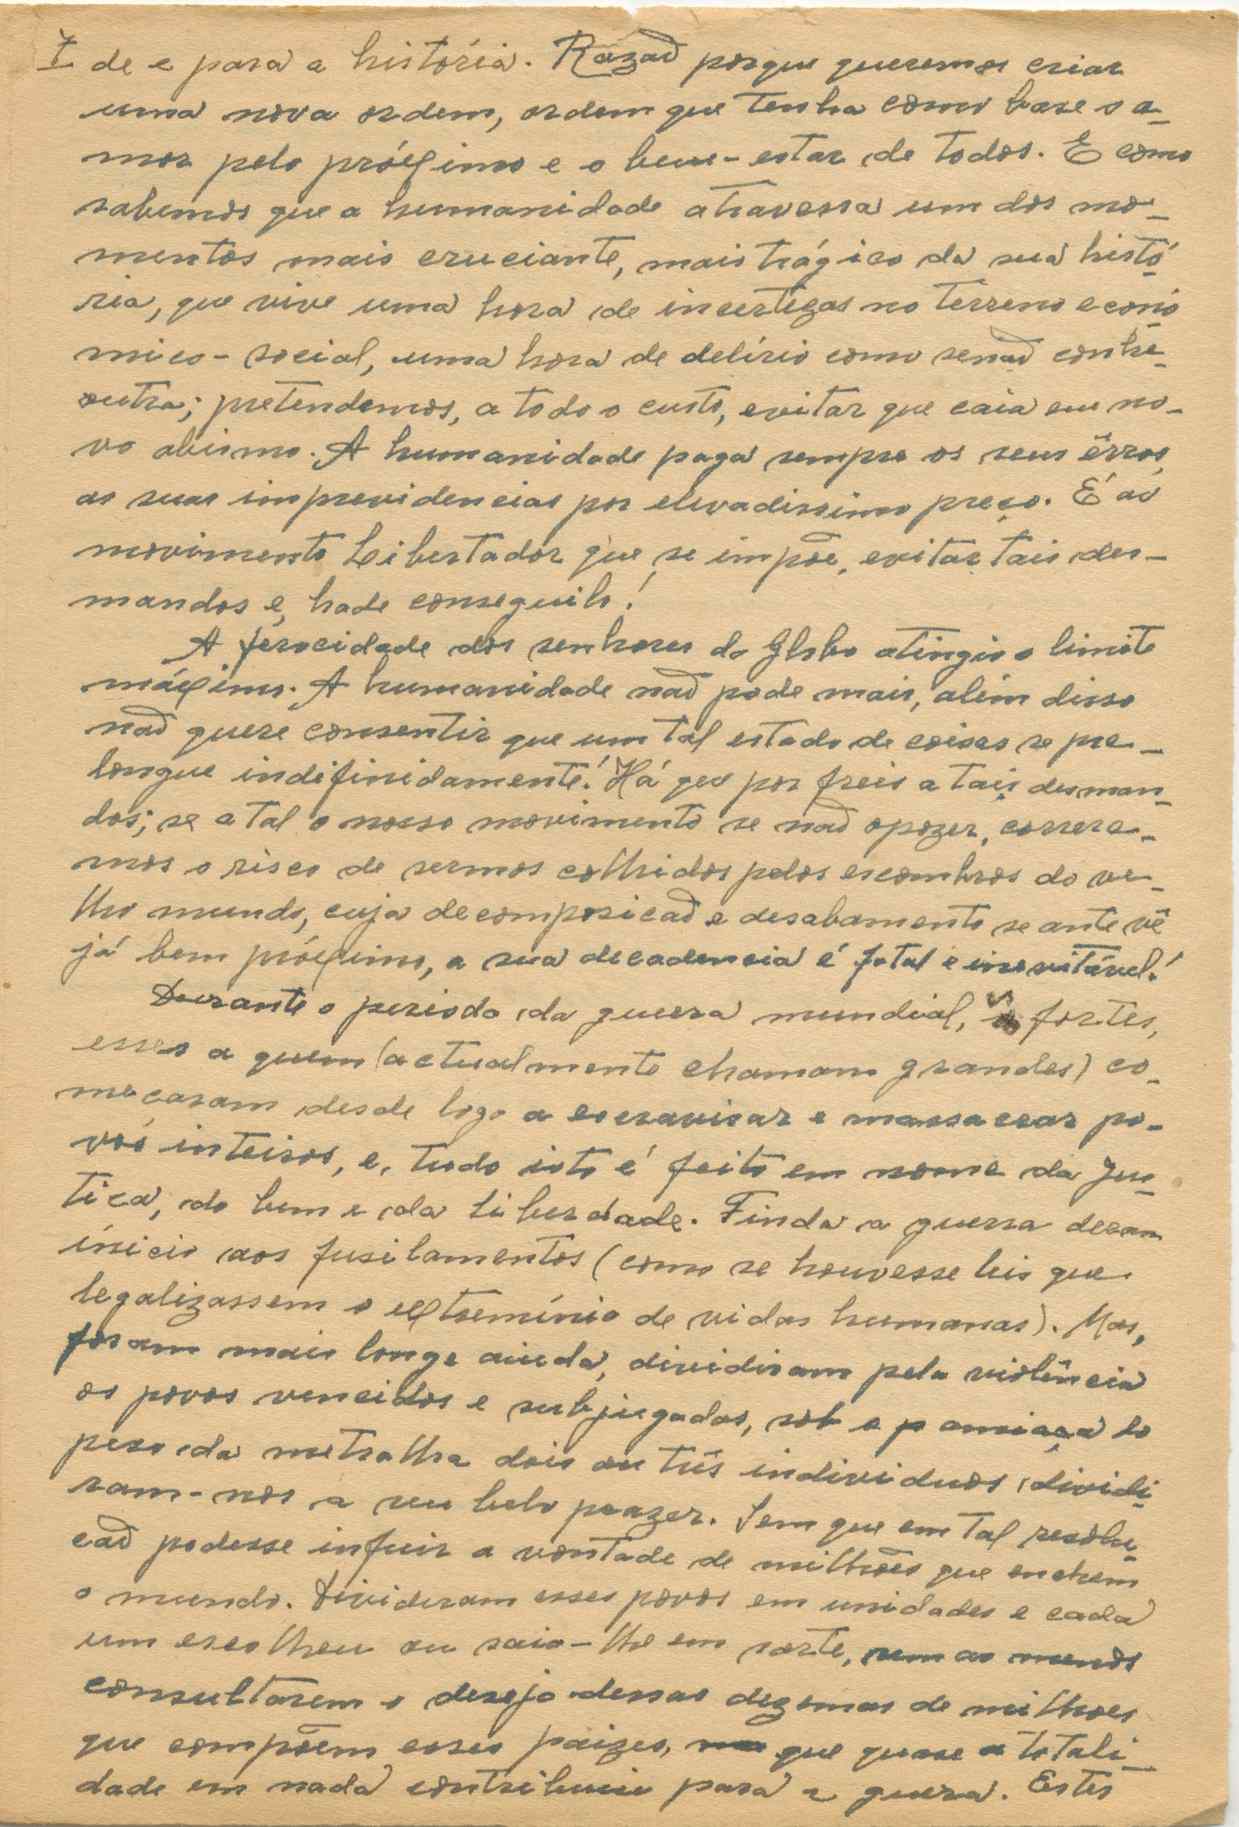 I de e para a história. Razaõ porque queremos criar
uma nova ordem, ordem que tenha como base o a-
mor pelo próximo e o bem-estar de todos. E como
sabemos que a humanidade atravessa um dos mo-
mentos mais cruciante, mais trágico da sua histó-
ria, que vive uma hora de incertezas no terreno econó
mico-social, uma hora de delírio como senaõ conhe-
outra; pretendemos, a todo o custo, evitar que caia em no-
vo abismo. A humanidade paga sempre os seus êrros,
as suas imprevidencias por elevadissimo preço. É ao
movimento Libertador que se impõe, evitar tais des-
mandos e, hade conseguilo!
A ferocidade dos senhores do Globo atingio o limite
máximo. A humanidade naõ pode mais, além disso
naõ quere consentir que um tal estado de coisas se pre-
longue indifinidamente! Há que por freio a tais desman-
dos; se a tal o nosso movimento se naõ opozer, correre-
mos o risco de sermos colhidos pelos escombros do ve-
lho mundo, cuja decomposicaõ e desabamento se ante vê
já bem próximo, a sua decadencia é fatal e inevitável!
Durante o periodo da guerra mundial, os fortes,
esses a quem (actualmente chamam grandes) co-
meçaram desde logo a escravisar e massacrar po-
vos inteiros, e, tudo isto é feito em nome da Jus-
tiça, do bem e da liberdade. Finda a guerra deram
início aos fusilamentos (como se houvesse leis que
legalizassem o extremínio de vidas humanas). Mas,
foram mais longe ainda, dividiram pela violência
os povos vencidos e subjugados, sob a ameaça do
peso da metralha dois ou três individuos dividi-
ram-nos a seu belo prazer. Sem que em tal resolu-
caõ podesse infuir a vontade de milhões que enchem
o mundo. Divideram esses povos em unidades e cada
um escolheu ou saio-lhe em sorte, sem ao menos
consultarem o desejo dessas dezenas de milhoes
que compõem esses paizes, que quase a totali
dade em nada contribuiu para a guerra. Estes